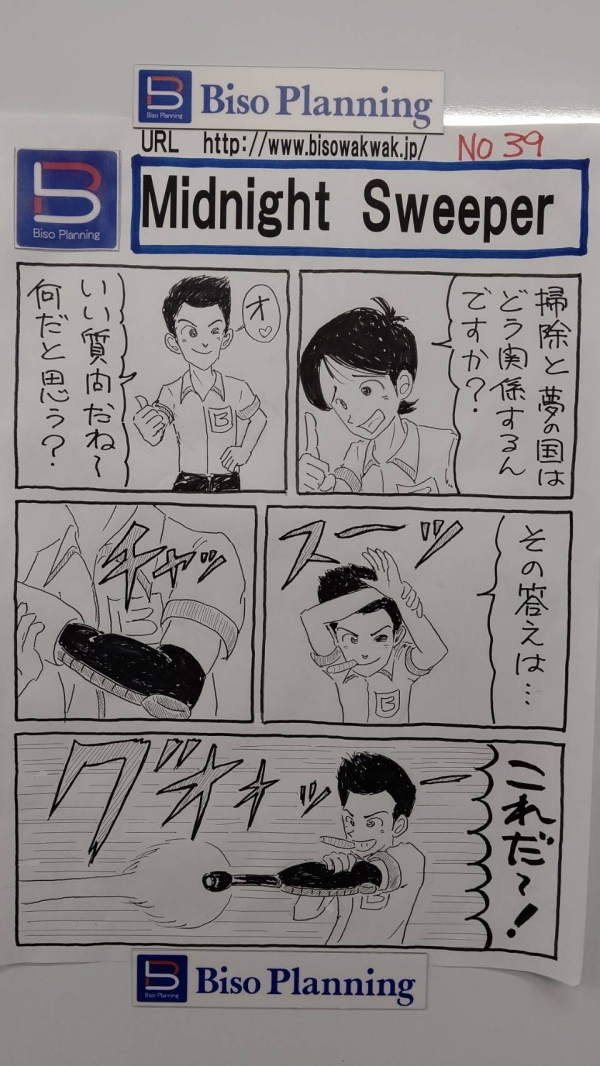 Biso Planning
Biso Planning
URL http://www.bisowakwak.jp/
NO 39
Biso Planning
Midnight Sweeper
掃除と夢の国は
どう関係するん
ですか?
オ♡
いい質問だね〜
何だと思う?
その答えは…
スーッ
チャッ
これだ〜!
グオォッー
Biso Planning
Biso Planning